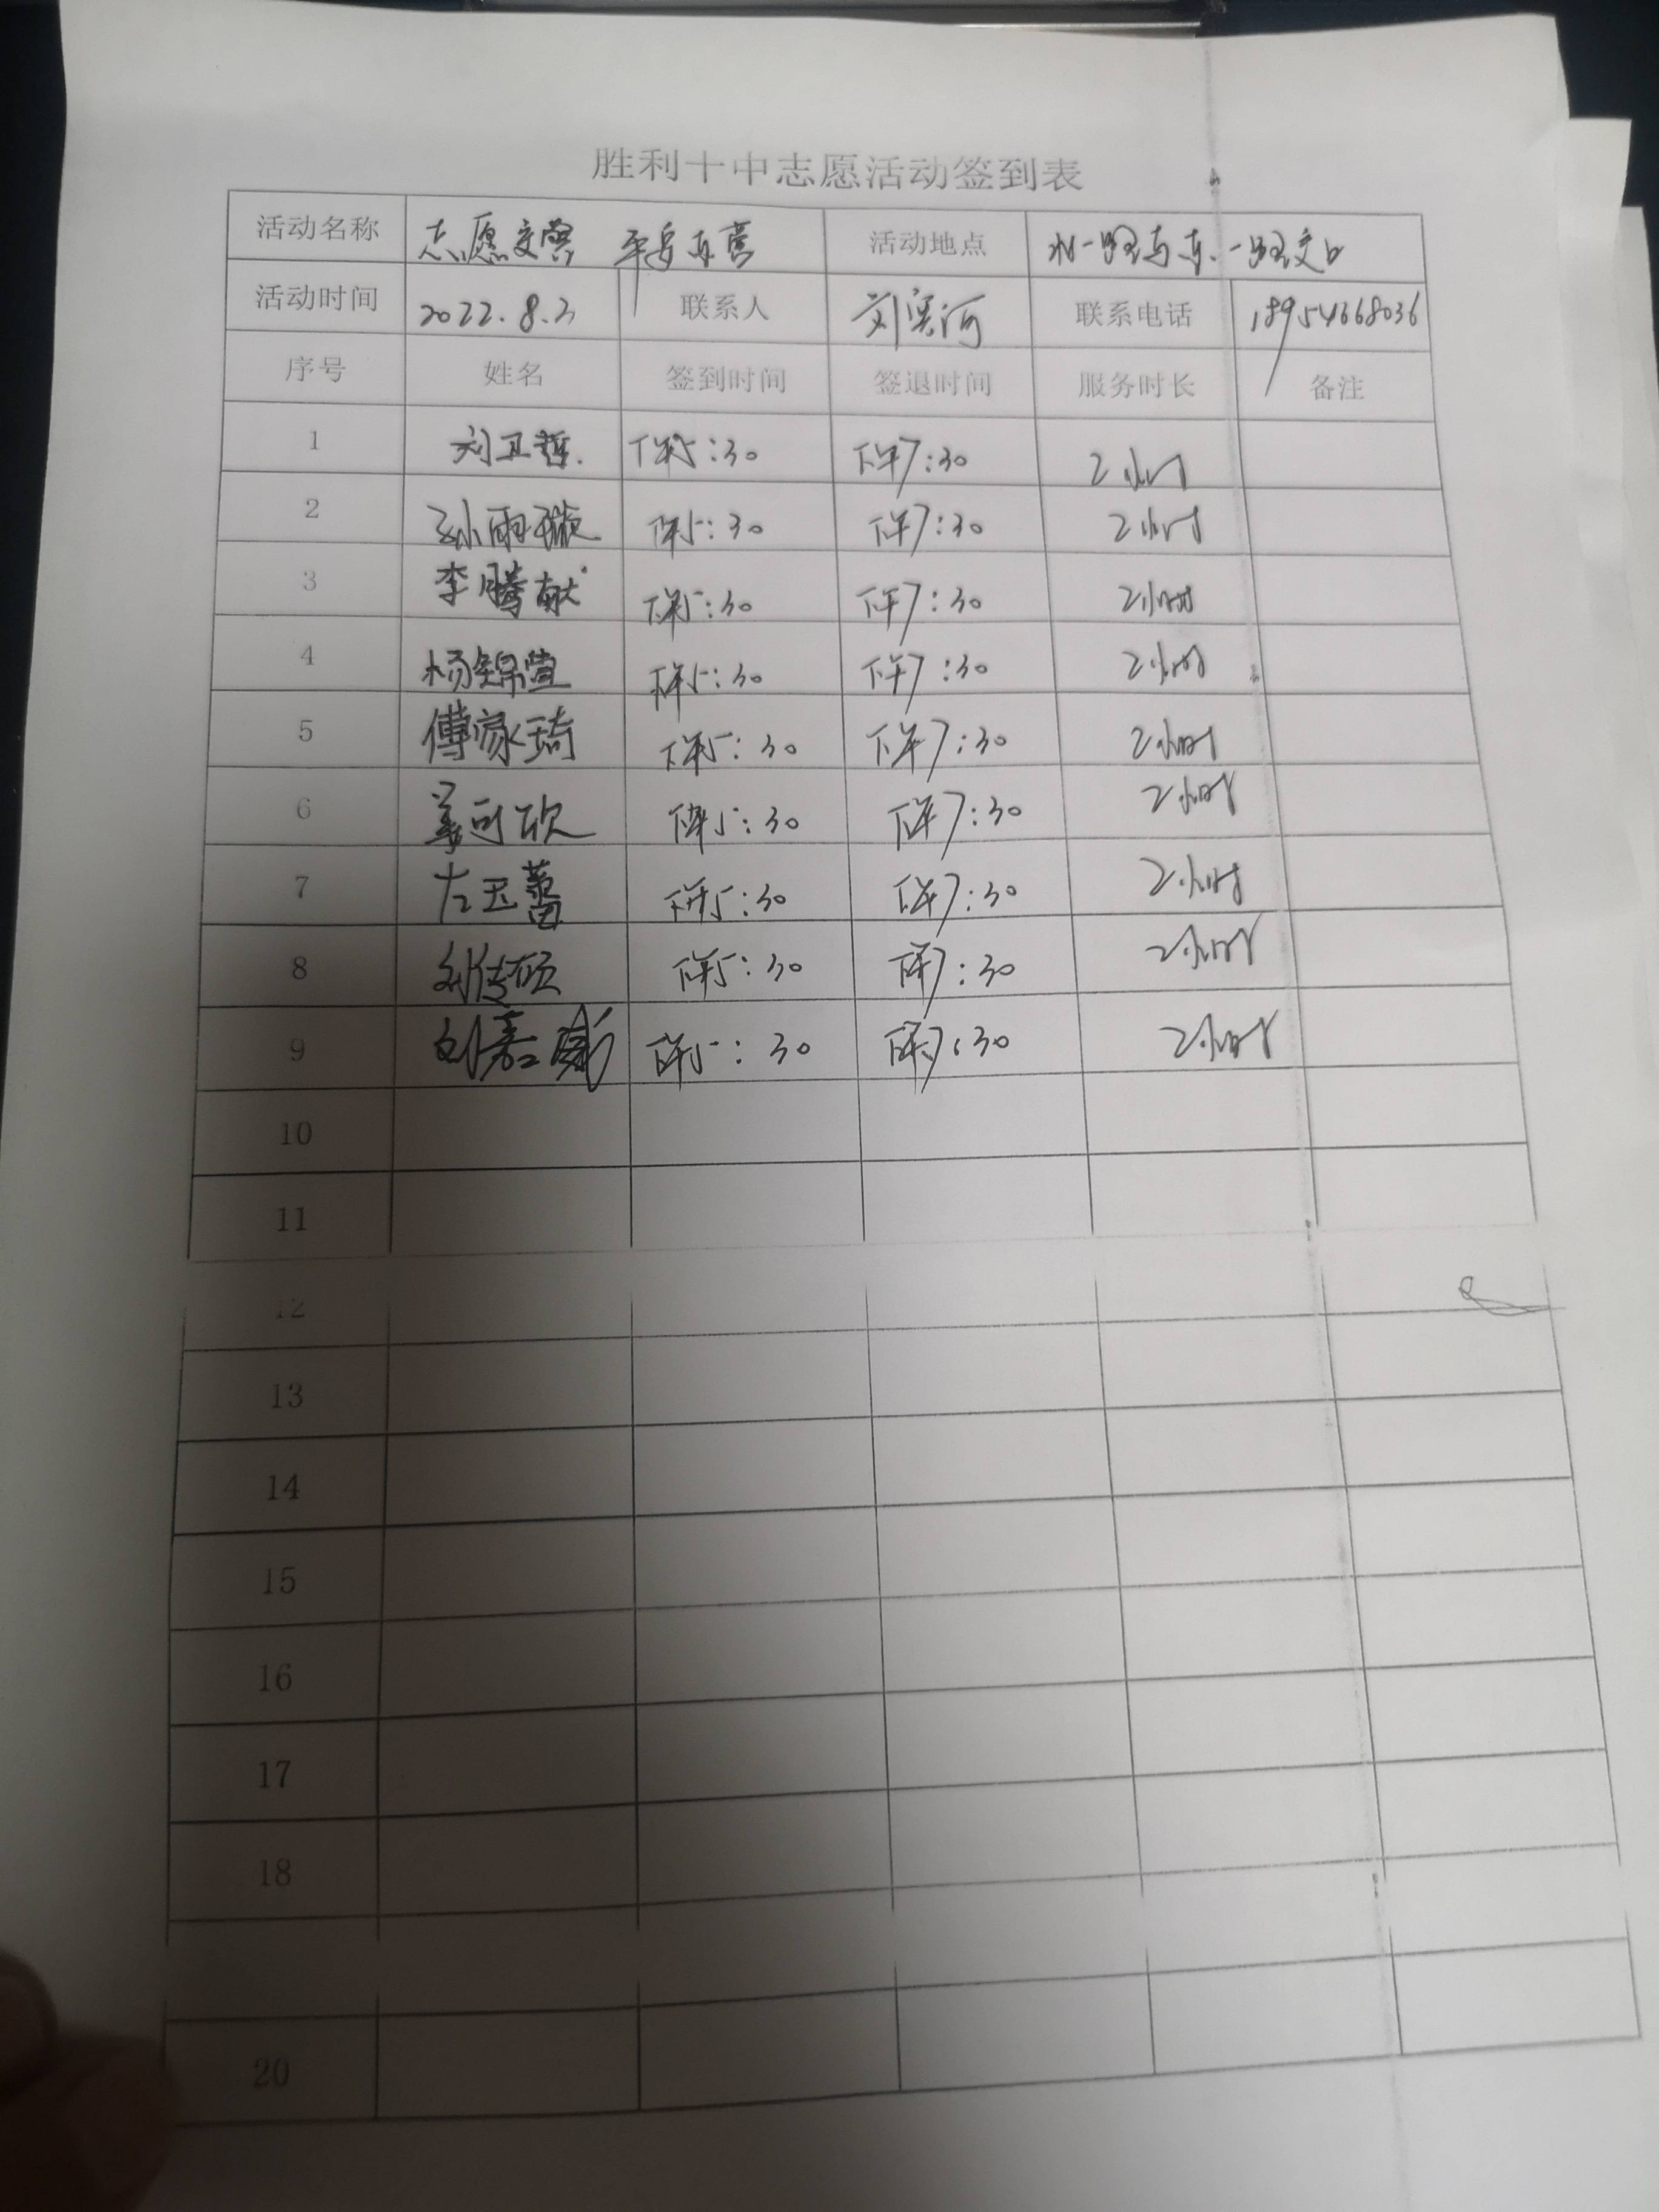 胜利十中志愿活动签到表
活动名称 志愿交警 平安东营 活动地点 北一路与东一路交口
活动时间 2022.8.3 联系人 刘滨河 联系电话 18954668036
序号 姓名 签到时间 签退时间 服务时长 备注
1 刘卫哲 下午5:30 下午7:30 2小时
2 孙雨璇 下午5:30 下午7:30 2小时
3 李腾献 下午5:30 下午7:30 2小时
4 杨锦萱 下午5:30 下午7:30 2小时
5 傅家琦 下午5:30 下午7:30 2小时
6 姜可欣 下午5:30 下午7:30 2小时
7 左玉蕾 下午5:30 下午7:30 2小时
8 刘传硕 下午5:30 下午7:30 2小时
9 刘嘉 下午5:30 下午7:30 2小时
10
11
12
13
14
15
16
17
18
20